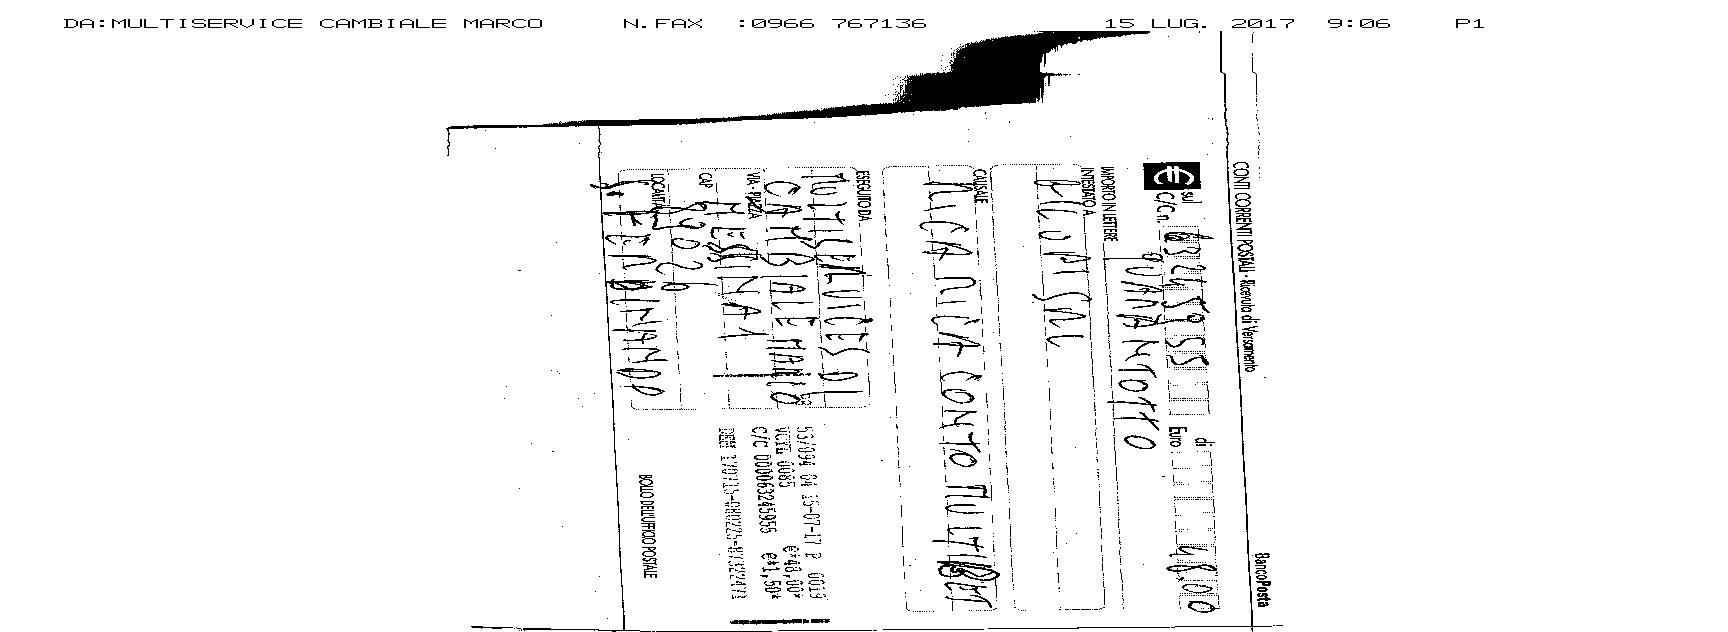 DA:MULTISERVICE CAMBIALE MARCO N.FAX :0966 767136 15 LUG. 2017 9:06 P1
CONTI CORRENTI POSTALI - Ricevuta di Versamento BancoPosta
€ sul C/C n. 63245955 di Euro 48,00
IMPORTO IN LETTERE QUARANTOTTO
INTESTATO A
CAUSALE
RICARICA CONTO MULTIBET
ESEGUITO DA
CAMBIALE MARCO
VIA - PIAZZA MESSINA 1
CAP 89026
LOCALITÀ S. FERDINANDO
53/094 04 15-07-17 P 0019
VCYL 0085 €*48,00*
C/C 000063245955 €*1,50*
BOLLO DELL'UFFICIO POSTALE